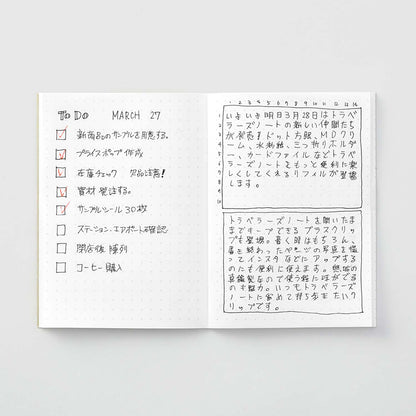 To Do MARCH 27
新商品のサンプルを用意する。
プライスポップ作成
在庫チェック 欠品注意!
資材発注する。
サンプルシール30枚
ステーション・エアポート確認
閉店後 陳列
コーヒー購入
1 2 3 4 5 6 7 8 9 10 11 12 13 14
1
2
3
4
5
6
7
8
9
10
いよいよ明日3月28日はトラベ
ラーズノートの新しい仲間たち
が発売!ドット方眼、MDクリ
ーム、水彩紙、三つ折りホルダ
ー、カードファイルなどトラベ
ラーズノートをもっと便利に楽
しくしてくれるリフィルが登場
します。
トラベラーズノートを開いたま
まキープできるブラスクリッ
プも登場。書く時はもちろん、
書き終わったページの写真を撮
ってインスタなどにアップする
のにも便利に使えます。
真鍮製なので使う程に味がでる
のも魅力。いつもトラベラーズ
ノートに留めて持ち歩きたいク
リップです。